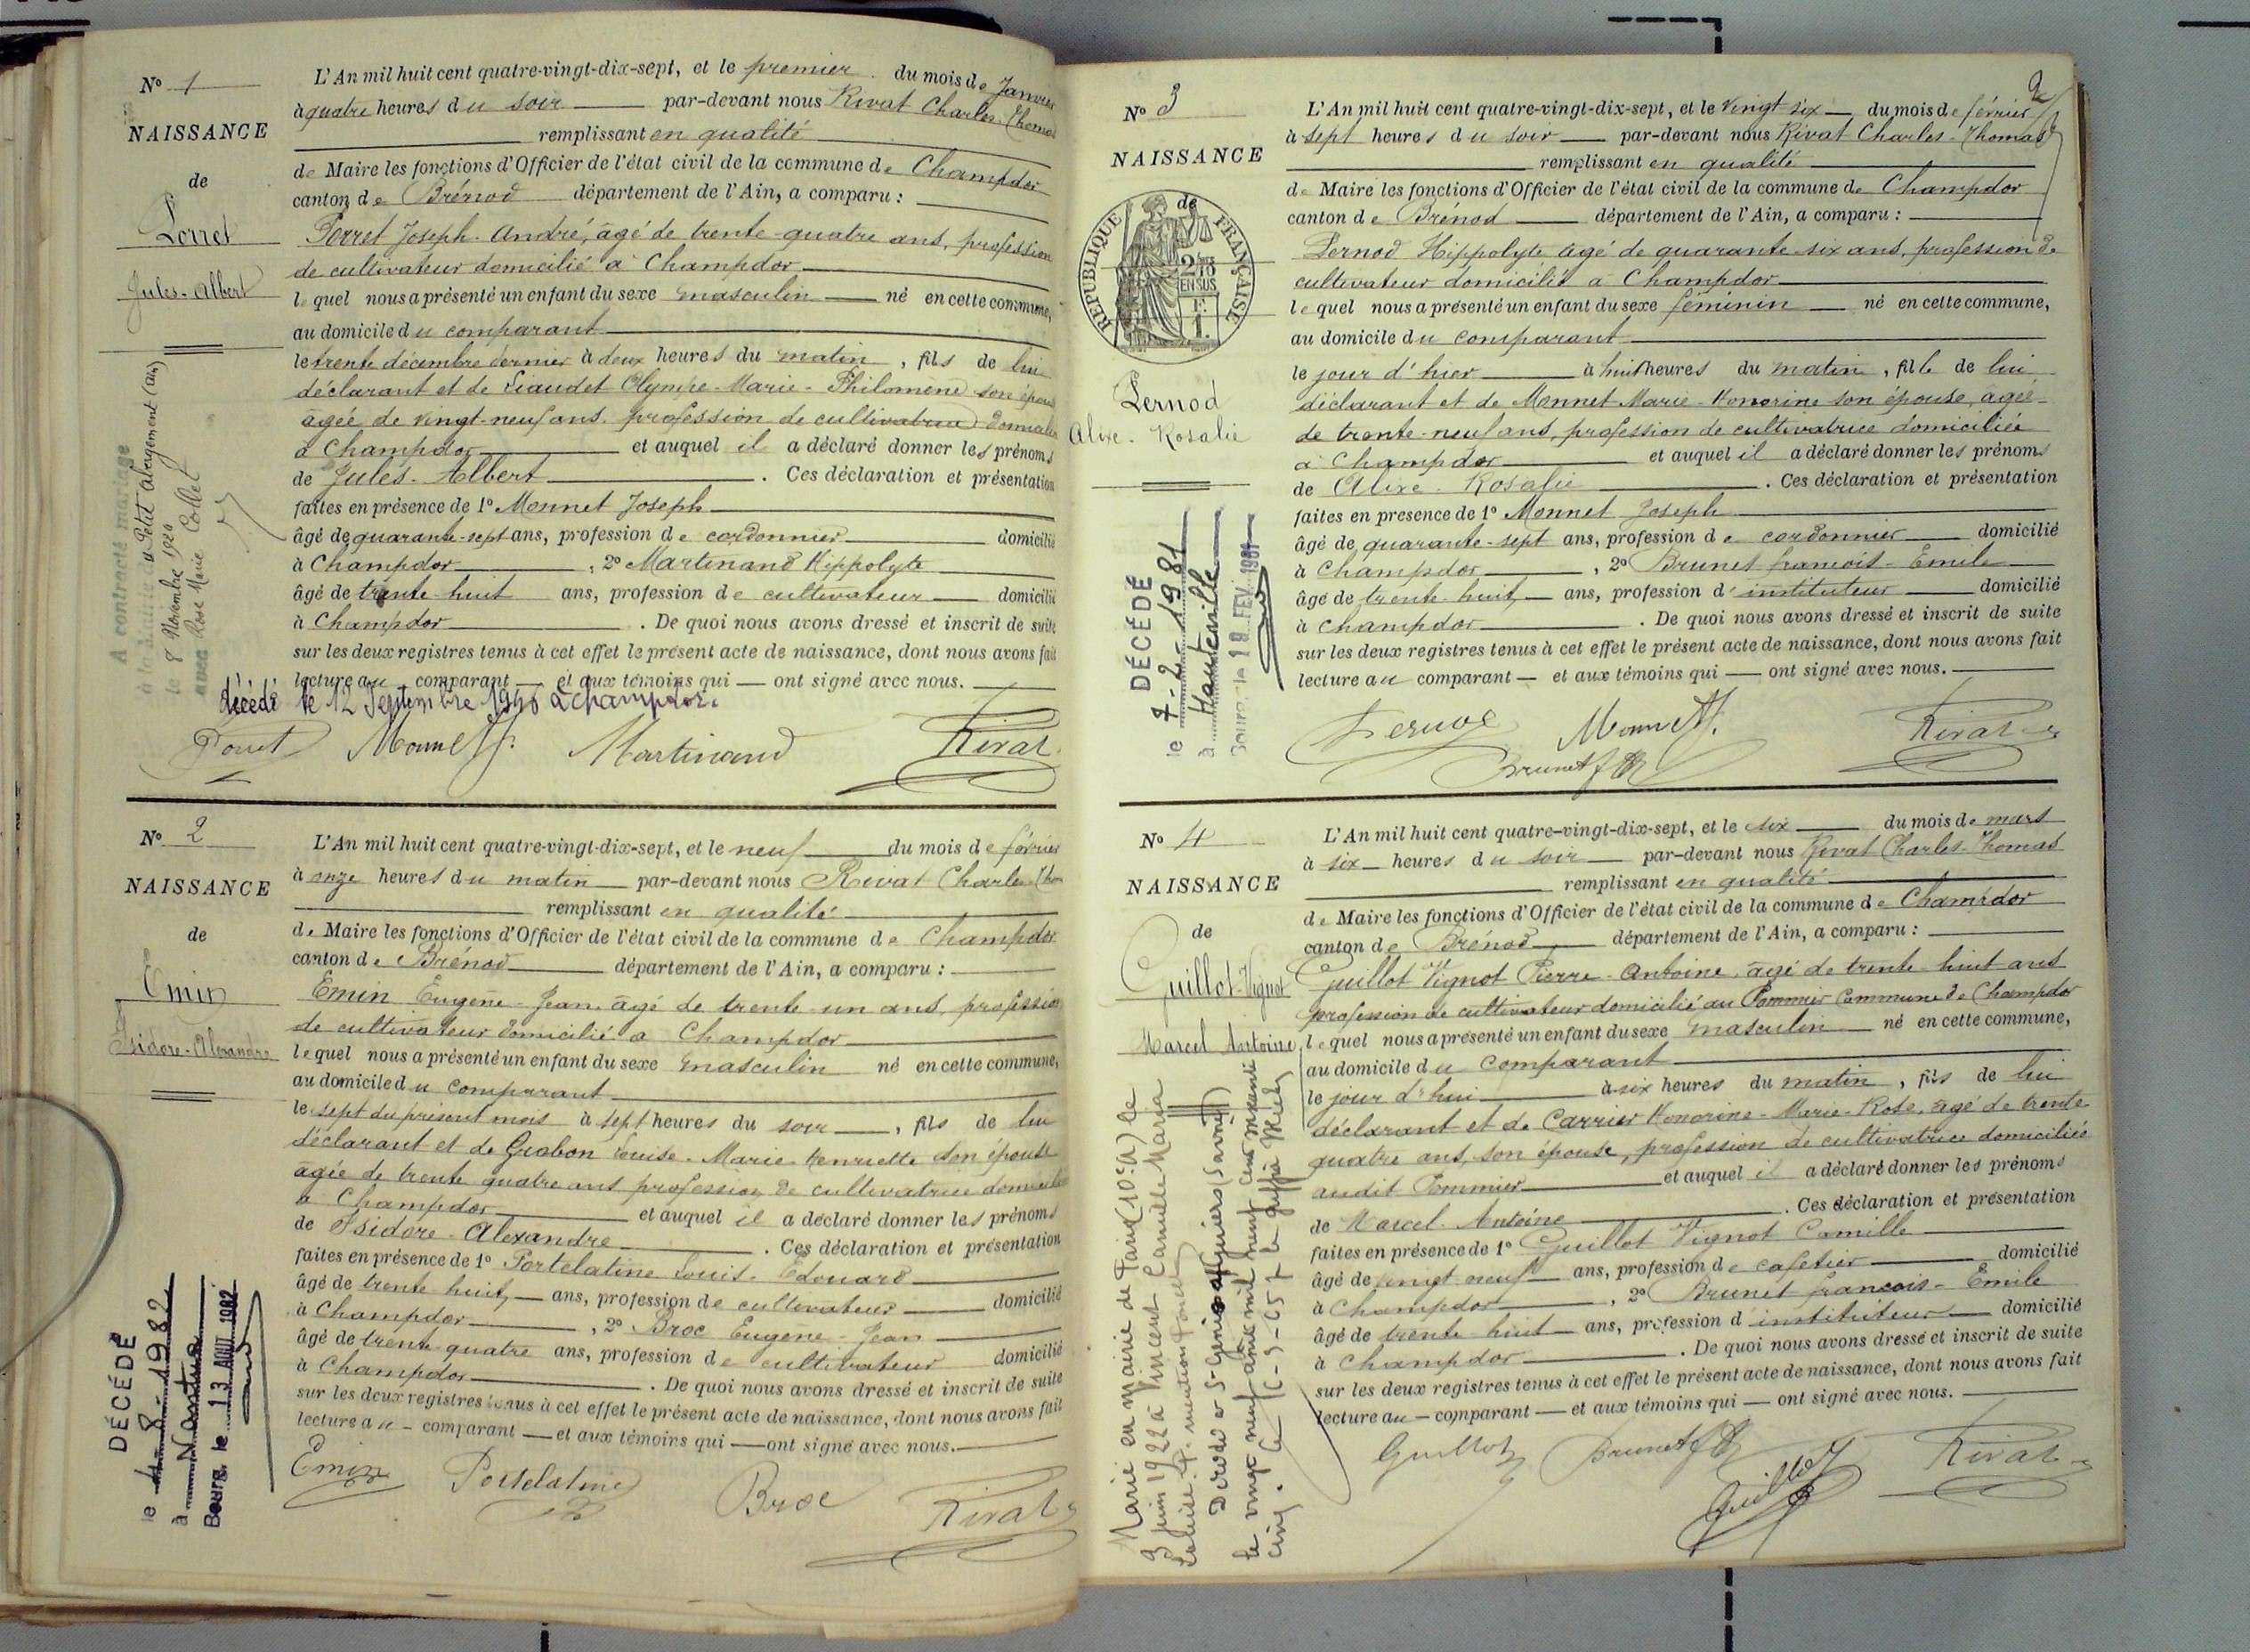 N° 1
NAISSANCE
de
Porret
Jules-Albert
A contracté mariage
à la Mairie du Petit Abergement (Ain)
le 8 Novembre 1920
avec Rose Marie Collet
L'An mil huit cent quatre-vingt-dix-sept, et le premier du mois de Janvier
à quatre heures du soir par-devant nous Rivat Charles-Thomas
remplissant en qualité
de Maire les fonctions d'Officier de l'état civil de la commune de Champdor
canton de Brénod département de l'Ain, a comparu :
Porret Joseph-André, âgé de trente-quatre ans, profession
de cultivateur domicilié à Champdor
lequel nous a présenté un enfant du sexe masculin né en cette commune,
au domicile du comparant
le trente décembre dernier à deux heures du matin, fils de lui
déclarant et de Liaudet Olympe-Marie-Philomène son épouse
âgée de vingt-neuf ans, profession de cultivatrice domiciliée
à Champdor et auquel il a déclaré donner les prénoms
de Jules-Albert. Ces déclaration et présentation
faites en présence de 1° Monnet Joseph
âgé de quarante-sept ans, profession de cordonnier domicilié
à Champdor, 2° Martinand Hippolyte
âgé de trente-huit ans, profession de cultivateur domicilié
à Champdor. De quoi nous avons dressé et inscrit de suite
sur les deux registres tenus à cet effet le présent acte de naissance, dont nous avons fait
lecture au comparant et aux témoins qui ont signé avec nous.
décédé le 12 Septembre 1940 à Champdor.
Porret Monnet J. Martinand Rivat
N° 2
NAISSANCE
de
Emin
Isidore-Alexandre
DÉCÉDÉ
le 4-8-1982
à Nantua
Bourg, le 13 AOUT 1982
L'An mil huit cent quatre-vingt-dix-sept, et le neuf du mois de février
à onze heures du matin par-devant nous Rivat Charles Tho
remplissant en qualité
de Maire les fonctions d'Officier de l'état civil de la commune de Champdor
canton de Brénod département de l'Ain, a comparu :
Emin Eugène-Jean, âgé de trente un ans, profession
de cultivateur domicilié à Champdor
lequel nous a présenté un enfant du sexe masculin né en cette commune,
au domicile du comparant
le sept du présent mois à sept heures du soir, fils de lui
déclarant et de Grobon Louise-Marie-Henriette son épouse
âgée de trente quatre ans profession de cultivatrice domiciliée
à Champdor et auquel il a déclaré donner les prénoms
de Isidore-Alexandre. Ces déclaration et présentation
faites en présence de 1° Portelatine Louis-Edouard
âgé de trente huit ans, profession de cultivateur domicilié
à Champdor, 2° Broc Eugène-Jean
âgé de trente quatre ans, profession de cultivateur domicilié
à Champdor. De quoi nous avons dressé et inscrit de suite
sur les deux registres tenus à cet effet le présent acte de naissance, dont nous avons fait
lecture au comparant et aux témoins qui ont signé avec nous.
Emin Portelatine Broc Rivat
2
N° 3
NAISSANCE
de
RÉPUBLIQUE FRANÇAISE
2/10 EN SUS
F. 1.
Pernod
Alixe-Rosalie
DÉCÉDÉ
le 7-2-1981
à Hauteville
Bourg, le 18 FEV. 1981
L'An mil huit cent quatre-vingt-dix-sept, et le vingt-six du mois de février
à sept heures du soir par-devant nous Rivat Charles-Thomas
remplissant en qualité
de Maire les fonctions d'Officier de l'état civil de la commune de Champdor
canton de Brénod département de l'Ain, a comparu :
Pernod Hippolyte âgé de quarante-six ans, profession de
cultivateur domicilié à Champdor
lequel nous a présenté un enfant du sexe féminin né en cette commune,
au domicile du comparant
le jour d'hier à huit heures du matin, fille de lui
déclarant et de Monnet Marie-Honorine son épouse, âgée
de trente-neuf ans, profession de cultivatrice domiciliée
à Champdor et auquel il a déclaré donner les prénoms
de Alixe-Rosalie. Ces déclaration et présentation
faites en présence de 1° Monnet Joseph
âgé de quarante-sept ans, profession de cordonnier domicilié
à Champdor, 2° Brunet françois-Emile
âgé de trente-huit ans, profession d'instituteur domicilié
à Champdor. De quoi nous avons dressé et inscrit de suite
sur les deux registres tenus à cet effet le présent acte de naissance, dont nous avons fait
lecture au comparant et aux témoins qui ont signé avec nous.
Pernod Monnet J. Rivat
Brunet f
N° 4
NAISSANCE
de
Guillot-Vignot
Marcel Antoine
Marié en mairie de Paris (10e A) le
3 juin 1922 à Vincent Camille Maria
Décédé à St Genix
le vingt neuf août mil neuf cent soixante
cinq. Le 16-9-65
L'An mil huit cent quatre-vingt-dix-sept, et le six du mois de mars
à six heures du soir par-devant nous Rivat Charles-Thomas
remplissant en qualité
de Maire les fonctions d'Officier de l'état civil de la commune de Champdor
canton de Brénod département de l'Ain, a comparu :
Guillot Vignot Pierre-Antoine, âgé de trente-huit ans
profession de cultivateur domicilié au Pommier Commune de Champdor
lequel nous a présenté un enfant du sexe masculin né en cette commune,
au domicile du comparant
le jour d'hui à six heures du matin, fils de lui
déclarant et de Carrier Honorine-Marie-Rose, âgé de trente
quatre ans, son épouse, profession de cultivatrice domiciliée
audit Pommier et auquel il a déclaré donner les prénoms
de Marcel-Antoine. Ces déclaration et présentation
faites en présence de 1° Guillot Vignot Camille
âgé de vingt neuf ans, profession de cafetier domicilié
à Champdor, 2° Brunet françois-Emile
âgé de trente-huit ans, profession d'instituteur domicilié
à Champdor. De quoi nous avons dressé et inscrit de suite
sur les deux registres tenus à cet effet le présent acte de naissance, dont nous avons fait
lecture au comparant et aux témoins qui ont signé avec nous.
Guillot Brunet f Guillot Rivat